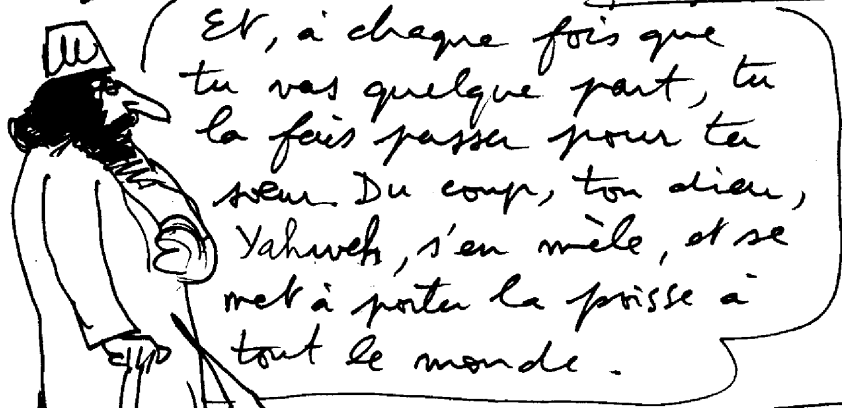 Et, à chaque fois que
tu vas quelque part, tu
la fais passer pour ta
sœur. Du coup, ton dieu,
Yahweh, s'en mèle, et se
met à porter la poisse à
tout le monde.